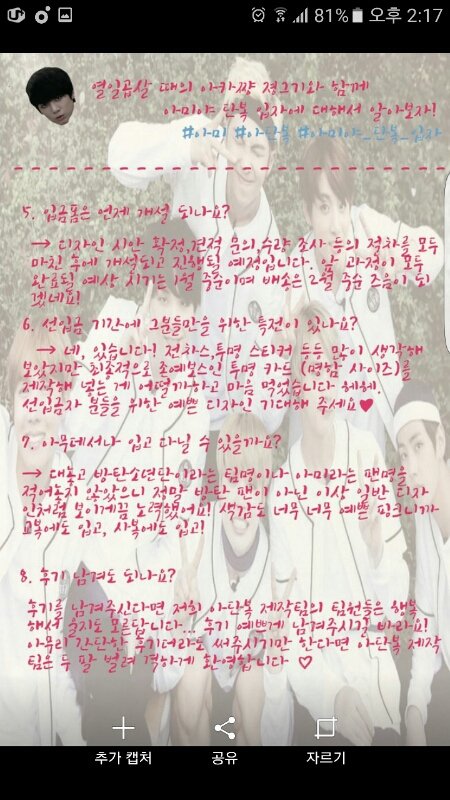 81% 오후 2:17
열일곱살 때의 아카쨩 정그기와 함께
아미야 단복 입자에 대해서 알아보자!
#아미 #아단복 #아미야_단복_입자
5. 입금폼은 언제 개설 되나요?
→ 디자인 시안 확정,견적 문의,수량 조사 등의 절차를 모두
마친 후에 개설되고 진행될 예정입니다. 앞 과정이 모두
완료될 예상 시기는 1월 중순이며 배송은 2월 중순 즈음이 되
겠네요!
6. 선입금 기간에 그분들만을 위한 특전이 있나요?
→ 네, 있습니다! 전차스,투명 스티커 등등 많이 생각해
보았지만 최종적으로 존예보스인 투명 카드 (명함 사이즈)를
제작해 넣는 게 어떨까하고 마음 먹었습니다 헤헤.
선입금자 분들을 위한 예쁜 디자인 기대해 주세요♥
7. 아무데서나 입고 다닐 수 있을까요?
→ 대놓고 방탄소년단이라는 팀명이나 아미라는 팬명을
적어놓지 않았으니 정말 방탄 팬이 아닌 이상 일반 디자
인처럼 보이게끔 노력했어요! 색감도 너무 너무 예쁜 핑크니까
교복에도 입고, 사복에도 입고!
8. 후기 남겨도 되나요?
후기를 남겨주신다면 저희 아단복 제작팀의 팀원들은 행복
해서 울지도 모른답니다... 후기 예쁘게 남겨주시길 바라요!
아무리 간단한 후기더라도 써주시기만 한다면 아단복 제작
팀은 두 팔 벌려 격하게 환영합니다 ♡
추가 캡처
공유
자르기